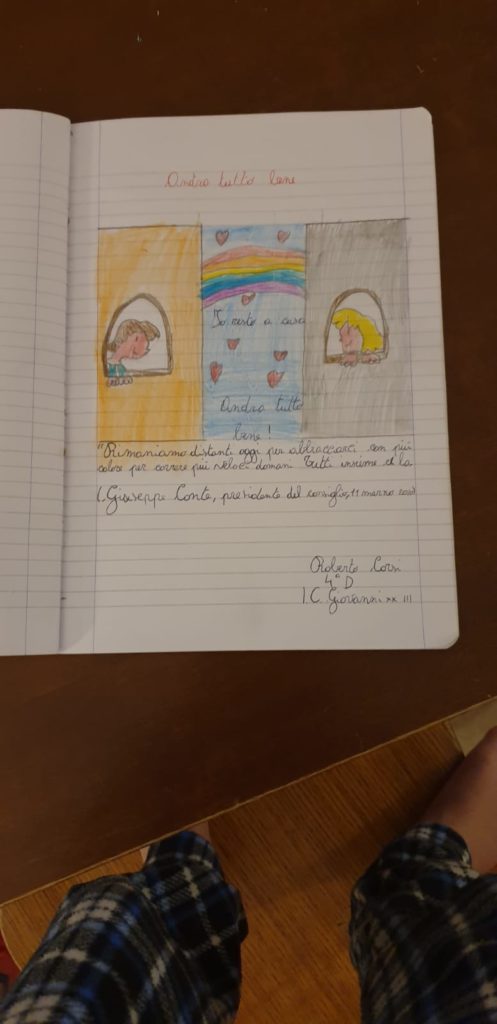 Andra tutto bene
Io resto a casa
Andra tutto
bene!
"Rimaniamo distanti oggi per abbracciarci con più
calore per correre più veloci domani. Tutti insieme ce la
(Giuseppe Conte, presidente del consiglio, 11 marzo 2020)
Roberto Corsi
4ª D
I.C. Giovanni XX III